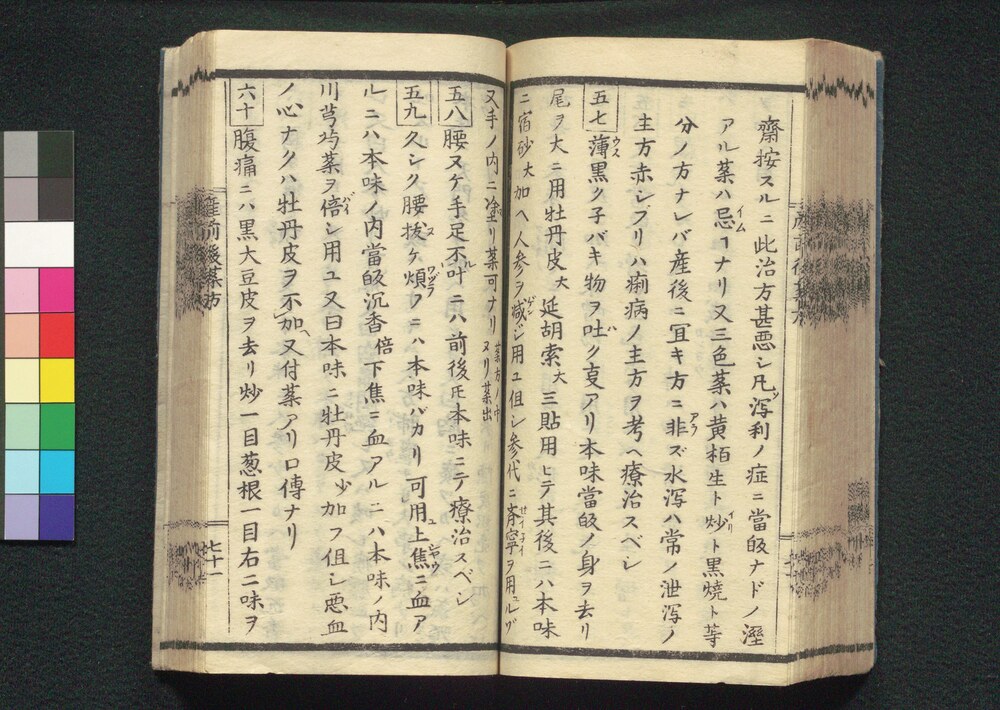 齋按スルニ此治方甚悪シ凡瀉利ノ症ニ當皈ナドノ溼
アル薬ハ忌ヿナリ又三色薬ハ黄栢生ト炒ト黒焼ト等
分ノ方ナレバ産後ニ冝キ方ニ非ズ水瀉ハ常ノ泄瀉ノ
主方赤シブリハ痢病ノ主方ヲ考ヘ療治スベシ
五七 薄黒ク子バキ物ヲ吐ク亰アリ本味當皈ノ身ヲ去リ
尾ヲ大ニ用牡丹皮大延胡索大三貼用ヒテ其後ニハ本味
ニ宿砂大加ヘ人参ヲ減ジ用ユ但シ参代ニ斉寧ヲ用ユルヿ
又手ノ内ニ塗リ薬可ナリ薬方ノ中ヌリ薬出
五八 腰ヌケ手足不叶ニハ前後𪜈本味ニテ療治スベシ
五九 久シク腰拔ケ煩フニハ本味バカリ可用上焦ニ血ア
ルニハ本味ノ内當皈沉香倍下焦ニ血アルニハ本味ノ内
川芎芍薬ヲ倍シ用ユ又曰本味ニ牡丹皮少加フ但シ悪血
ノ心ナクハ牡丹皮ヲ不加又付薬アリ口傳ナリ
六十 腹痛ニハ黒大豆皮ヲ去リ炒一目葱根一目右二味ヲ
産前後薬方
七十一